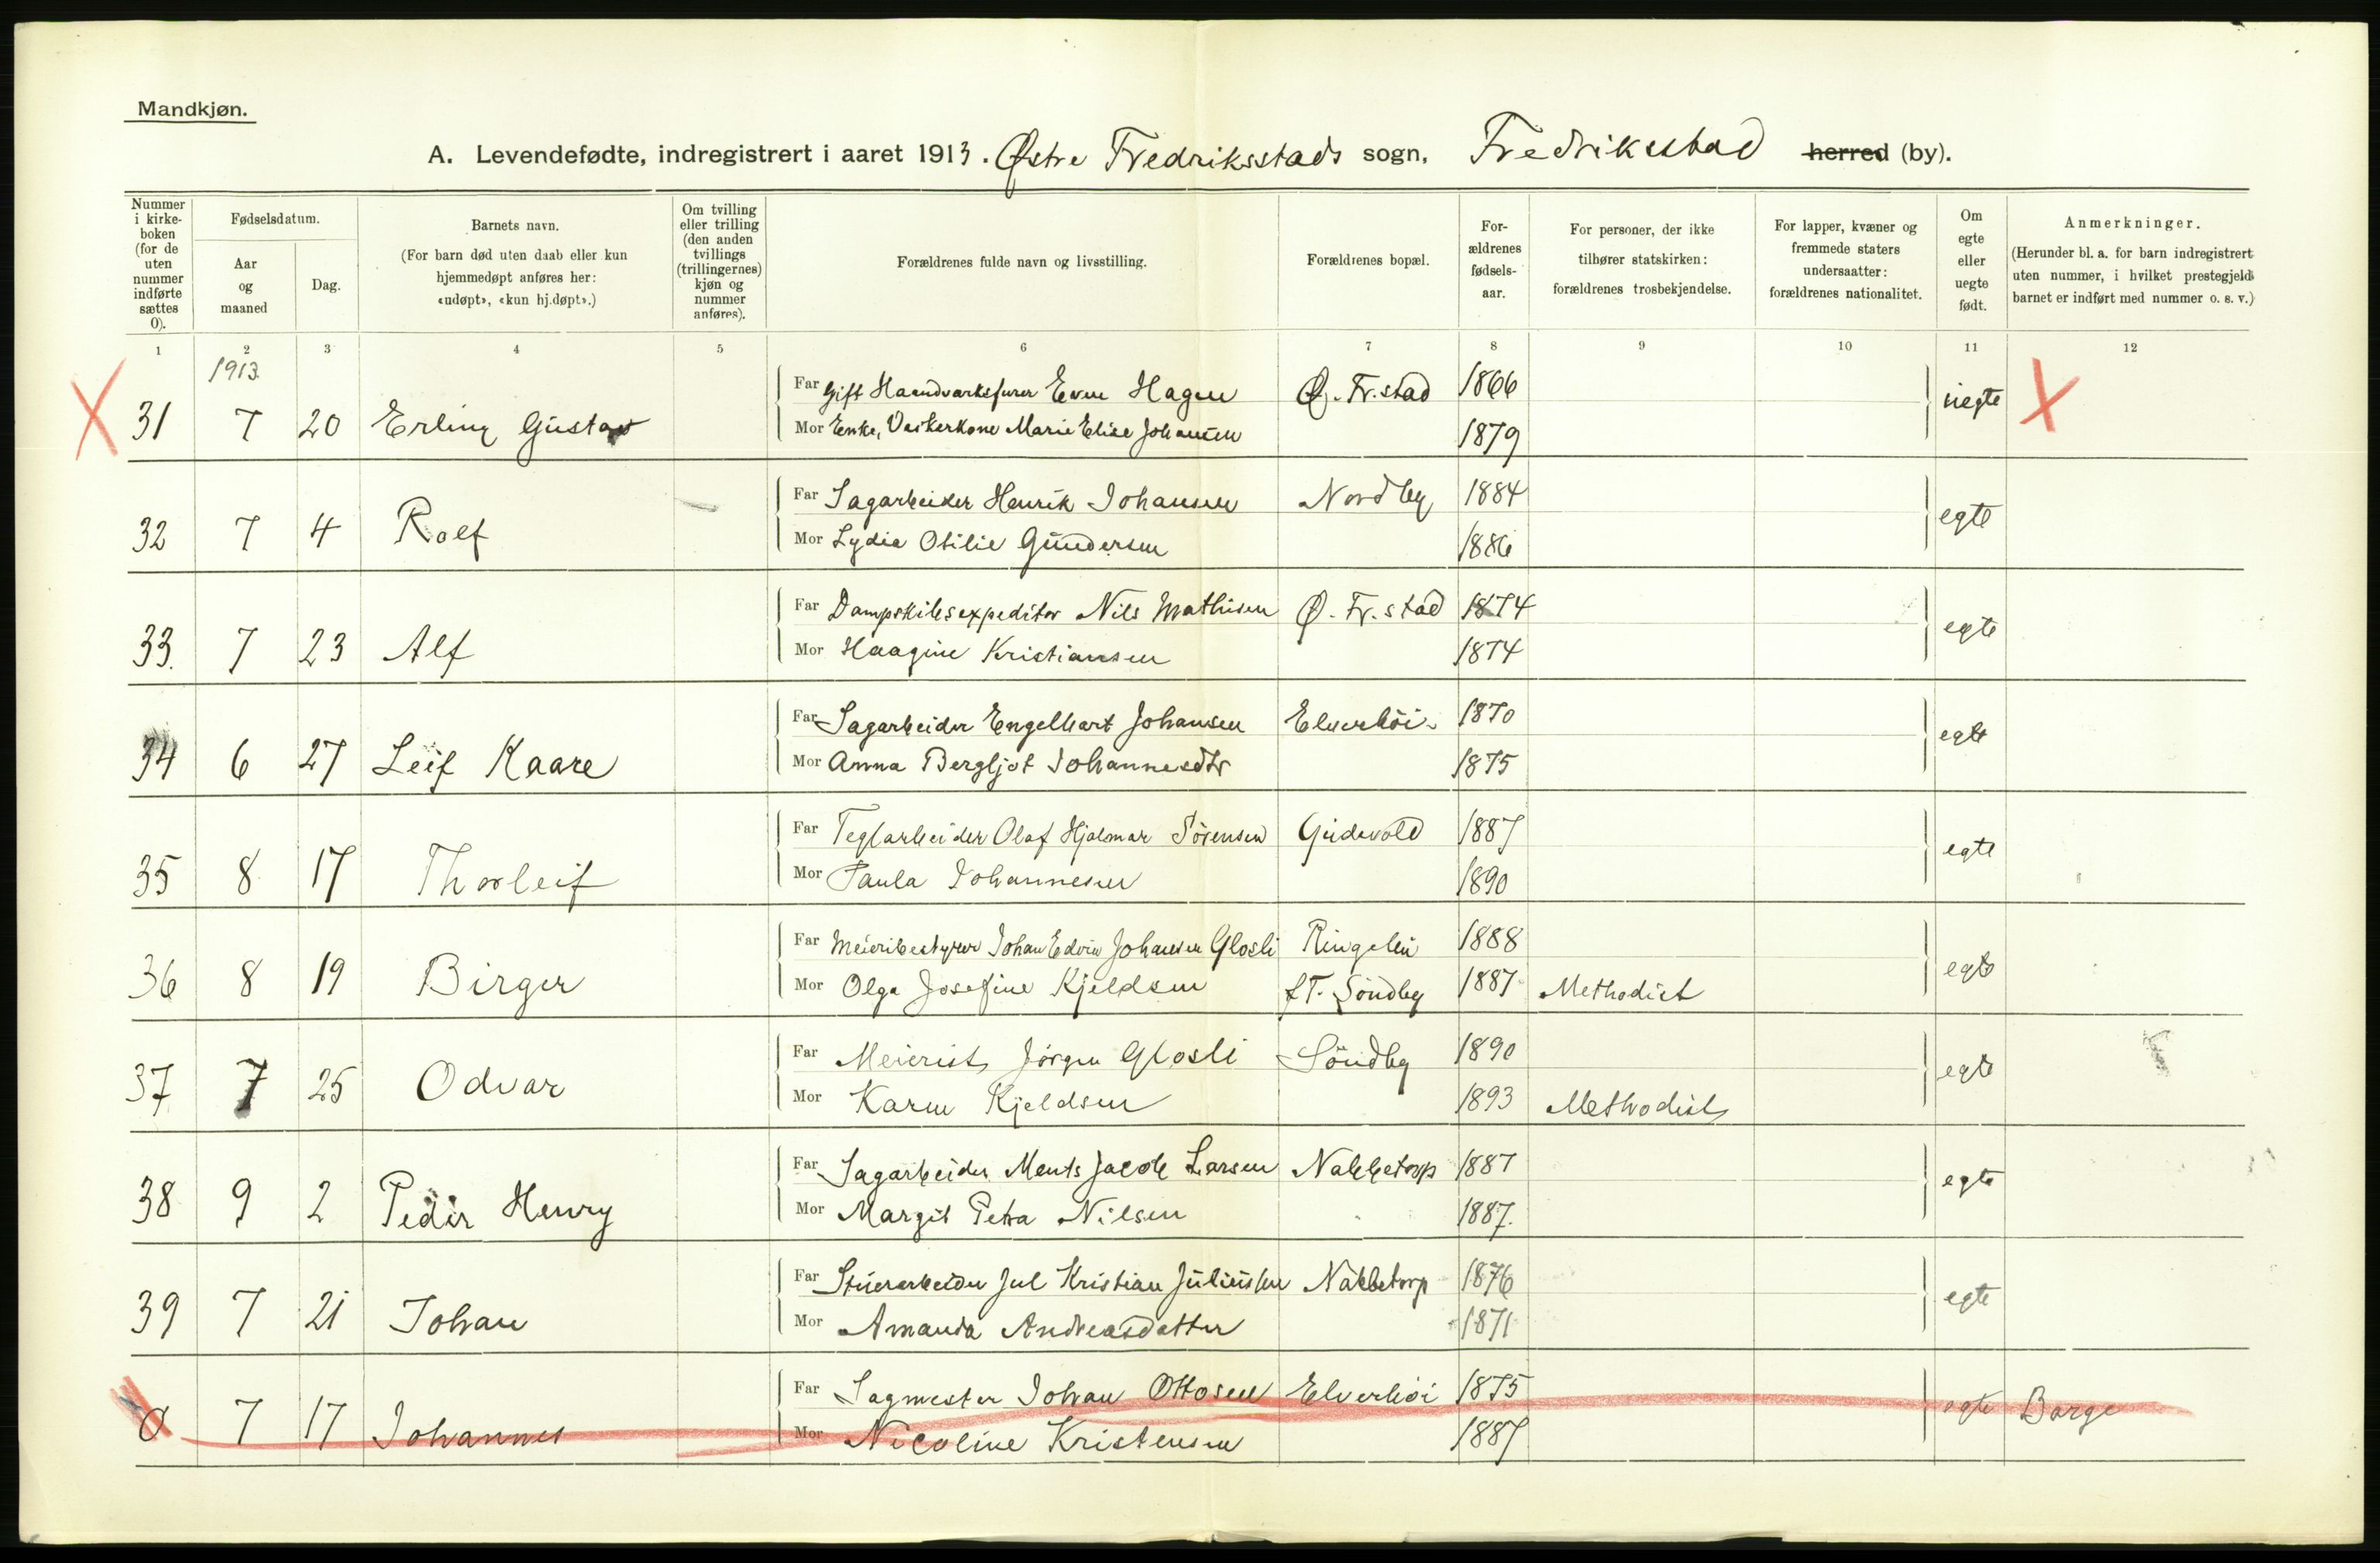 Mandkjøn.
A. Levendefødte, indregistrert i aaret 1913. Østre Fredriksstads sogn, Fredriksstad herred (by).
Nummer i kirkeboken (for de uten nummer indførte sættes 0).
Fødselsdatum.
Aar og maaned
Dag.
Barnets navn.
(For barn død uten daab eller kun hjemmedøpt anføres her: «udøpt», «kun hj.døpt».)
Om tvilling eller trilling (den anden tvillings (trillingernes) kjøn og nummer anføres).
Forældrenes fulde navn og livsstilling.
Forældrenes bopæl.
Forældrenes fødselsaar.
For personer, der ikke tilhører statskirken: forældrenes trosbekjendelse.
For lapper, kvæner og fremmede staters undersaatter: forældrenes nationalitet.
Om egte eller uegte født.
Anmerkninger.
(Herunder bl. a. for barn indregistrert uten nummer, i hvilket prestegjeld barnet er indført med nummer o. s. v.)
1 2 3 4 5 6 7 8 9 10 11 12
1913.
Far gift Haandværksfurer Even Hagen Ø. Fr.stad 1866
31 7 20 Erling Gustav uegte
Mor Enke, Vaskerkone Marie Elise Johansen 1879
Far Sagarbeider Henrik Johansen Nordby 1884
32 7 4 Rolf egte
Mor Lydia Otilie Gundersen 1886
Far Dampskibsexpeditør Nils Mathisen Ø. Fr.stad 1874
33. 7 23 Alf egte
Mor Haagine Kristiansen 1874
Far Sagarbeider Engelhart Johansen Elverhöi 1870
34 6 27 Leif Kaare egte
Mor Anna Bergljot Johannesdtr 1875
Far Teglarbeider Olaf Hjalmar Sörensen Gudevold 1887
35 8 17 Thorleif egte
Mor Paula Johannesen 1890
Far Meieribestyrer Johan Edvin Johansen Glosli 1888
36 8 19 Birger egte
Mor Olga Josefine Kjeldsen f.T. Söndby 1887 Methodist
Far Meierist Jörgen Glosli Söndby 1890
37 7 25 Odvar egte
Mor Karen Kjeldsen 1893 Methodist
Far Sagarbeider Ments Jacob Larsen Nabbetorp 1887
38 9 2 Peder Henry egte
Mor Margit Petra Nilsen 1887.
Far Stuerarbeider Jul Kristian Juliussen Nabbetorp 1876
39 7 21 Johan egte
Mor Amanda Andreasdatter 1871
Far Sagmester Johan Ottosen Elverhöi 1875
0 7 17 Johannes egte Borge
Mor Nicoline Kristensen 1887